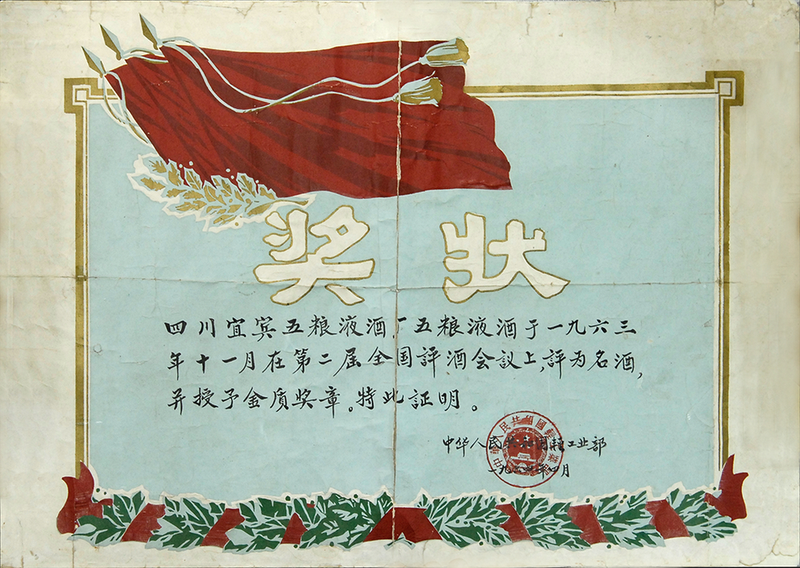 奖状
四川宜宾五粮液酒厂五粮液酒于一九六三
年十一月在第二届全国評酒会议上,評为名酒,
并授予金质奖章。特此証明。
中华人民共和国轻工业部
一九六年月